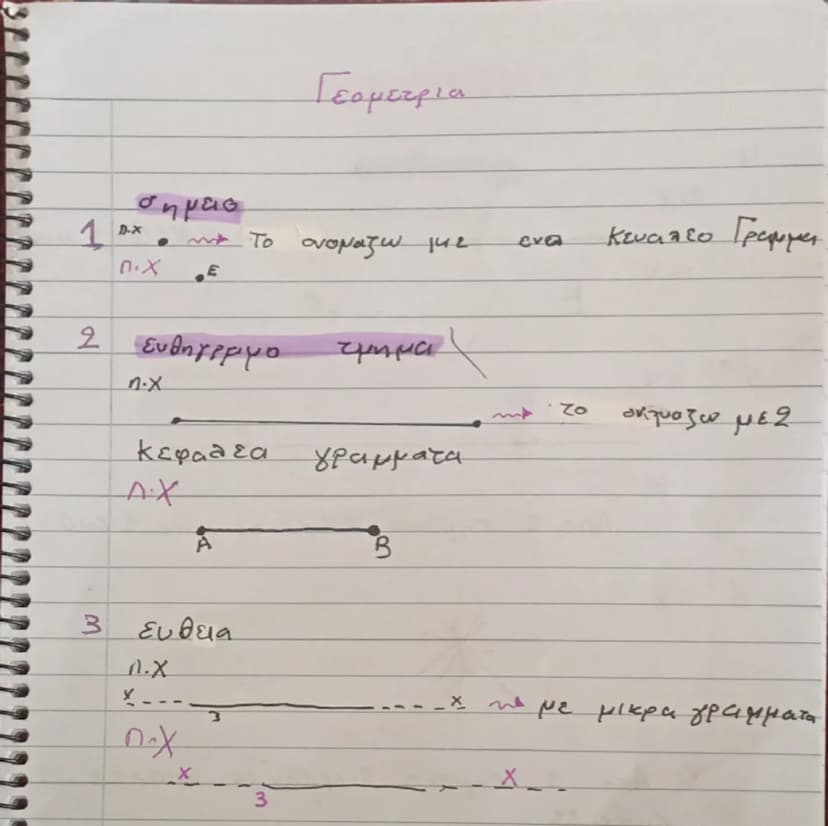 Γεομετρια
σημειο
1 π.χ • ⇝ Το ονομαζω με ενα κεναλεο Γραμμα
π.χ • Ε
2 ευθηγερμο τμημα
π.χ
⇝ το με 2
κεφαλεα γραμματα
π.χ
Α Β
3 ευθεια
π.χ
x x ⇝ με μικρα γραμματα
3
π.χ
x x
3